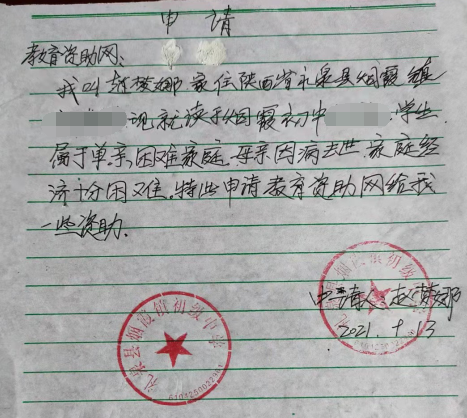 申 请
教育资助网：
我叫赵梦娜 家住陕西省礼泉县烟霞镇
现就读于烟霞初中 学生，
属于单亲困难家庭，母亲因病去世，家庭经
济十分困难，特此申请教育资助网给我
一些资助，
申请人：赵梦娜
2021. 9. 13
礼泉县烟霞镇初级中学